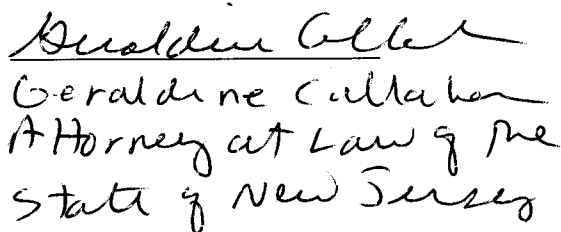 Geraldine Callahan
Geraldine Callahan
Attorney at Law of the
State of New Jersey